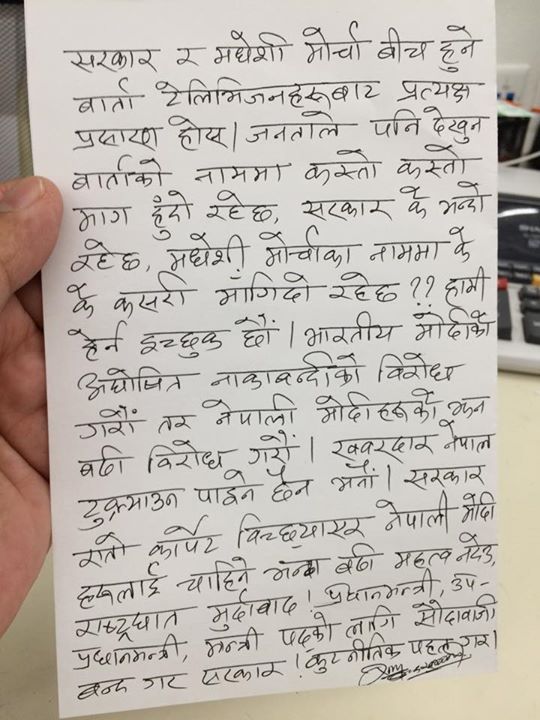 सरकार र मधेशी मोर्चा बीच हुने
बार्ता टेलिभिजनहरूबाट प्रत्यक्ष
प्रसारण होस् | जनताले पनि देखुन
बार्ताको नाममा कस्तो कस्तो
माग हुँदो रहेछ, सरकार के भन्दो
रहेछ, मधेशी मोर्चाका नाममा के
के कसरी माँगिदो रहेछ ?? हामी
हेर्न इच्छुक छौं | भारतीय मोदीको
अघोषित नाकाबन्दीको विरोध
गरौं तर नेपाली मोदीहरूको झन
बढी विरोध गरौं | खबरदार नेपाल
टुक्र्याउन पाईने छैन भनौं | सरकार
रातो कार्पेट विच्छ्याएर नेपाली मोदी
हरूलाई चाहिने भन्दा बढी महत्व नदेउ,
राष्ट्रघात मुर्दाबाद ! प्रधानमन्त्री, उप-
प्रधानमन्त्री, मन्त्री पदको लागि सौदावाजी
बन्द गर सरकार ! कुटनीतिक पहल गर |